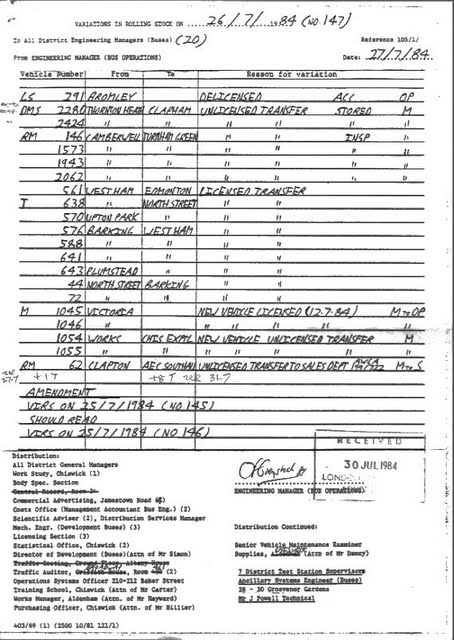 VARIATIONS IN ROLLING STOCK ON 26/7/1984 (NO 147)
To All District Engineering Managers (Buses) (20) Reference 105/1/
From ENGINEERING MANAGER (BUS OPERATIONS) Date: 27/7/84
Vehicle Number From To Reason for variation
LS 291 BROMLEY DELICENSED ACC OP
DMS 2280 THORNTON HEATH CLAPHAM UNLICENSED TRANSFER STORED M
2424 " " " " " "
RM 146 CAMBERWELL TURNHAM GREEN " " INSP M
1573 " " " " " "
1943 " " " " " "
2062 " " " " " "
561 WEST HAM EDMONTON LICENSED TRANSFER
T 638 " NORTH STREET " "
570 UPTON PARK " " "
576 BARKING WEST HAM " "
588 " " " "
641 " " " "
643 PLUMSTEAD " " "
44 NORTH STREET BARKING " "
72 " " " "
M 1045 VICTORIA NEW VEHICLE LICENSED (12.7.84) M TO OP
1046 " " " " " "
1054 WORKS CHIS EXPL NEW VEHICLE UNLICENSED TRANSFER M
1055 " " " " " " M
RM 62 CLAPTON AEC SOUTHALL UNLICENSED TRANSFER TO SALES DEPT M TO S
AMENDMENT
VIRS ON 25/7/1984 (NO 145)
SHOULD READ
VIRS ON 25/7/1984 (NO 146)
RECEIVED
30 JUL 1984
ENGINEERING MANAGER (BUS OPERATIONS)
Distribution:
All District General Managers
Work Study, Chiswick (1)
Body Spec. Section
Commercial Advertising, Jamestown Road
Costs Office (Management Accountant Bus Eng.) (2)
Scientific Adviser (2), Distribution Services Manager
Mech. Engr. (Development Buses) (3)
Licensing Section (3)
Statistical Office, Chiswick (2)
Director of Development (Buses)(Attn of Mr Simon)
Traffic Costing, Ground Floor, Albany House
Traffic Auditor, Room (2)
Operations Systems Officer 210-212 Baker Street
Training School, Chiswick (Attn of Mr Carter)
Works Manager, Aldenham (Attn of Mr Hayward)
Purchasing Officer, Chiswick (Attn of Mr Hillier)
Distribution Continued:
Senior Vehicle Maintenance Examiner
Supplies, (Attn of Mr Dancy)
7 District Test Station Supervisors
Ancillary Systems Engineer (Buses)
28 - 30 Grosvenor Gardens
Mr J Powell Technical
403/69 (1) (2500 10/81 121/1)